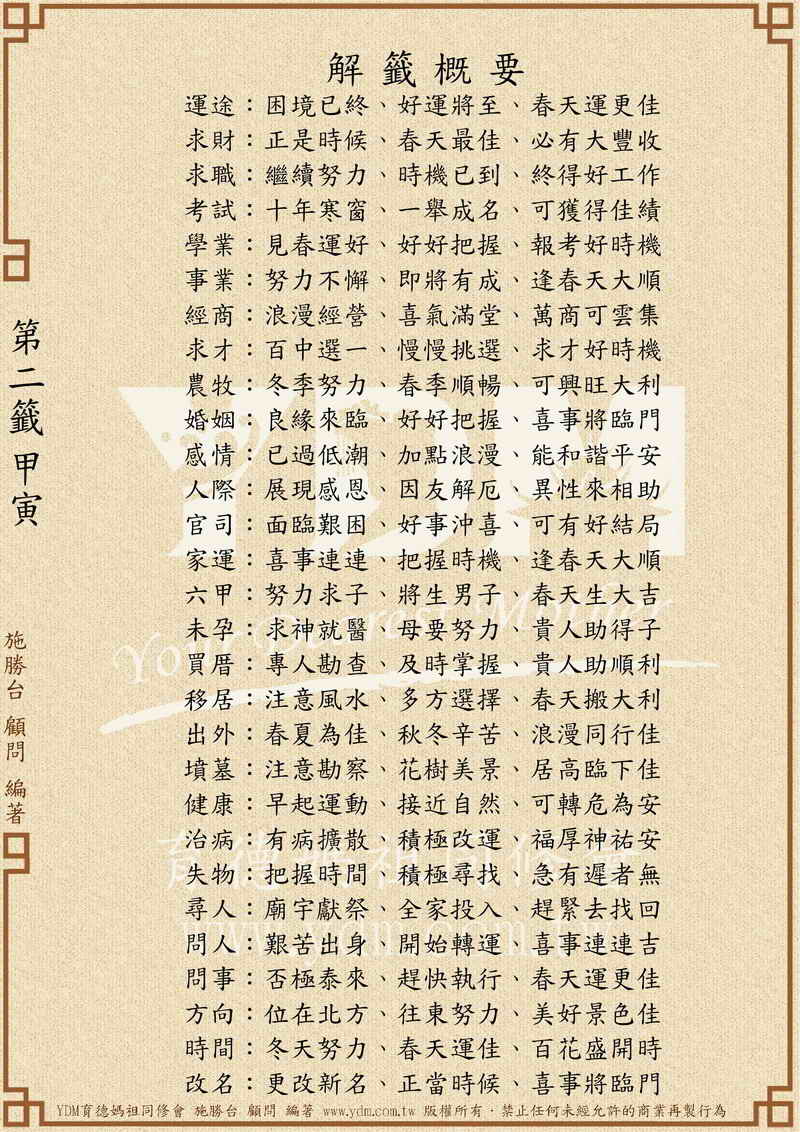 解籤概要
運途：困境已終、好運將至、春天運更佳
求財：正是時候、春天最佳、必有大豐收
求職：繼續努力、時機已到、終得好工作
考試：十年寒窗、一舉成名、可獲得佳績
學業：見春運好、好好把握、報考好時機
事業：努力不懈、即將有成、逢春天大順
經商：浪漫經營、喜氣滿堂、萬商可雲集
求才：百中選一、慢慢挑選、求才好時機
農牧：冬季努力、春季順暢、可興旺大利
婚姻：良緣來臨、好好把握、喜事將臨門
感情：已過低潮、加點浪漫、能和諧平安
人際：展現感恩、因友解厄、異性來相助
官司：面臨艱困、好事沖喜、可有好結局
家運：喜事連連、把握時機、逢春天大順
六甲：努力求子、將生男子、春天生大吉
未孕：求神就醫、母要努力、貴人助得子
買厝：專人勘查、及時掌握、貴人助順利
移居：注意風水、多方選擇、春天搬大利
出外：春夏為佳、秋冬辛苦、浪漫同行佳
墳墓：注意勘察、花樹美景、居高臨下佳
健康：早起運動、接近自然、可轉危為安
治病：有病擴散、積極改運、福厚神祐安
失物：把握時間、積極尋找、急有遲者無
尋人：廟宇獻祭、全家投入、趕緊去找回
問人：艱苦出身、開始轉運、喜事連連吉
問事：否極泰來、趕快執行、春天運更佳
方向：位在北方、往東努力、美好景色佳
時間：冬天努力、春天運佳、百花盛開時
改名：更改新名、正當時候、喜事將臨門
第二籤 甲寅
施勝台 顧問 編著
YDM
Your Dearest Mother
育德媽祖同修會
www.ydm.com.tw
YDM育德媽祖同修會 施勝台 顧問 編著 www.ydm.com.tw 版權所有．禁止任何未經允許的商業再製行為